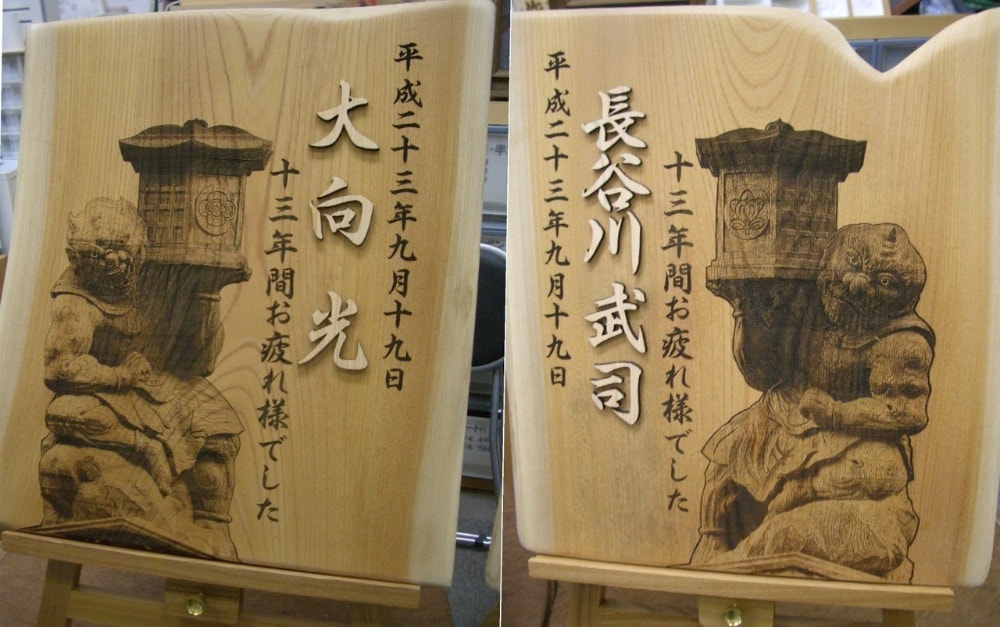 平成二十三年九月十九日
大向光
十三年間お疲れ様でした
十三年間お疲れ様でした
長谷川武司
平成二十三年九月十九日